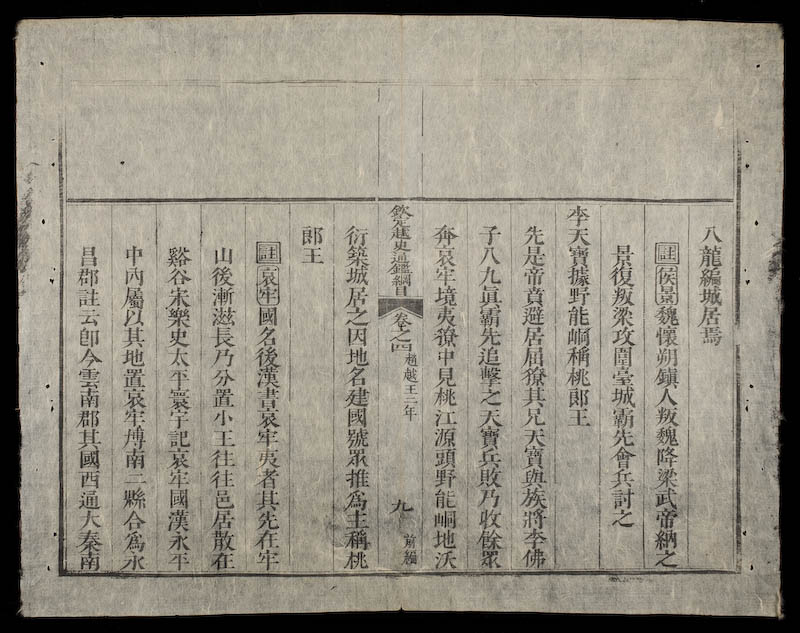 入龍編城居焉
註侯景魏懷朔鎮人叛魏降梁武帝納之
景復叛梁攻圍臺城霸先會兵討之
李天寶據野能峒稱桃郎王
先是帝賁避居屈獠其兄天寶與族將李佛
子入九眞霸先追擊之天寶兵敗乃收餘眾
奔哀牢境夷獠中見桃江源頭野能峒地沃
欽定越史通鑑綱目 卷之四 趙越王二年 九 前編
衍築城居之因地名建國號眾推爲主稱桃
郎王
註哀牢國名後漢書哀牢夷者其先在牢
山後漸滋長乃分置小王往往邑居散在
谿谷宋樂史太平寰宇記哀牢國漢永平
中內屬以其地置哀牢博南二縣合爲永
昌郡註云卽今雲南郡其國西通大秦南